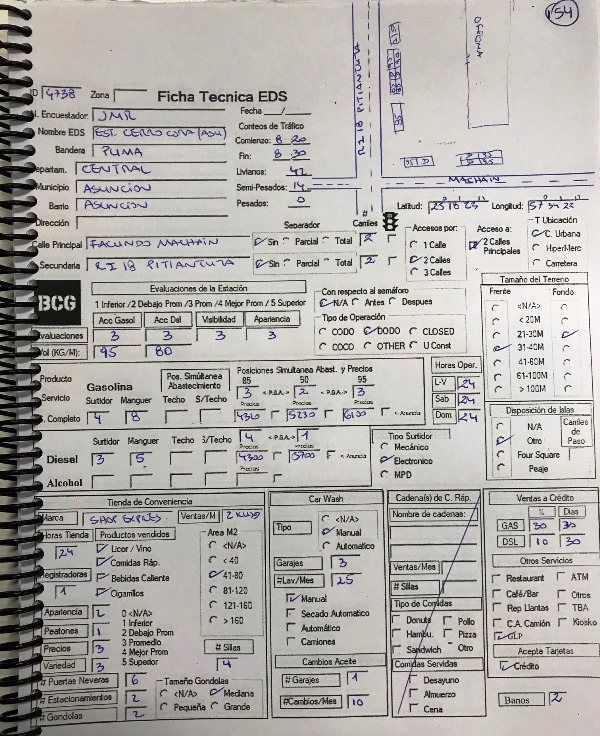 154
OFICINA
R.I 18 PITIANTUTA
MACHAIN
ID 4738 Zona
Ficha Tecnica EDS
N. Encuestador JMR
Fecha __/__
Nombre EDS EST. CERRO CORA (ASU)
Conteos de Tráfico
Comienzo: 8 20
Bandera PUMA
Fin: 8.30
Departam. CENTRAL
Livianos: 42
Municipio ASUNCION
Semi-Pesados: 14
Barrio ASUNCION
Pesados: 0
Dirección
Latitud: 25 18 23 Longitud: 57 34 22
Separador # Carriles
Accesos por: Acceso a: T Ubicación
Calle Principal FACUNDO MACHAIN Sin Parcial Total 2
1 Calle 2 Calles Principales C. Urbana
Secundaria R.I 18 PITIANTUTA Sin Parcial Total 2
2 Calles HiperMerc
3 Calles Carretera
BCG
Evaluaciones de la Estación
1 Inferior /2 Debajo Prom /3 Prom /4 Mejor Prom / 5 Superior
Acc Gasol Acc Dsl Visibilidad Apariencia
Evaluaciones 3 3 3 3
Vol (KG/M): 95 80
Con respecto al semáforo
N/A Antes Despues
Tipo de Operación
CODO DODO CLOSED
COCO OTHER U Const
Tamaño del Terreno
Frente Fondo
<N/A>
< 20M
21-30M
31-40M
41-60M
61-100M
> 100M
Producto Gasolina
Servicio Surtidor Manguer
Pos. Simúltanea Abastecimiento
Techo S/Techo
Posiciones Simultanea Abast. y Precios
85 50 95
3 <-P.S.A.-> 2 <-P.S.A.-> 3
Precios Precios Precios
S. Completo 4 8 4320 5230 6100 <-Anuncia
Horas Oper.
L-V 24
Sab 24
Dom 24
Surtidor Manguer Techo S/Techo 4 <-P.S.A.-> 1
Precios Precios
Diesel 3 5 4300 5700 <-Anuncia
Alcohol
Tipo Surtidor
Mecánico
Electronico
MPD
Disposición de Islas
N/A
Otro
Four Square
Peaje
Carriles de Paso
Tienda de Conveniencia
Marca SHOP EXPRES Ventas/M
Horas Tienda 24
Productos vendidos
Licor / Vino
Comidas Ráp.
Bebidas Caliente
Cigarrilos
Registradoras 1
Area M2
<N/A>
< 40
41-80
81-120
121-160
> 160
Apariencia 2
Peatones 1
Precios 3
Variedad 3
0 <N/A>
1 Inferior
2 Debajo Prom
3 Promedio
4 Mejor Prom
5 Superior
# Sillas 4
# Puertas Neveras 6
# Estacionamientos 2
# Gondolas 2
Tamaño Gondolas
<N/A> Mediana
Pequeña Grande
Car Wash
Tipo
<N/A>
Manual
Automatico
Garajes 3
#Lav/Mes 25
Manual
Secado Automatico
Automático
Camiones
Cambios Aceite
# Garajes 1
#Cambios/Mes 10
Cadena(s) de C. Ráp.
Nombre de cadenas:
Ventas/Mes
# Sillas
Tipo de Comidas
Donuts Pollo
Hambu. Pizza
Sandwich Otro
Comidas Servidas
Desayuno
Almuerzo
Cena
Ventas a Crédito
% Dias
GAS 30 30
DSL 10 30
Otros Servicios
Restaurant ATM
Café/Bar Otros
Rep Llantas TBA
C.A. Camión Kiosko
GLP
Acepta Tarjetas
Crédito
Banos 2